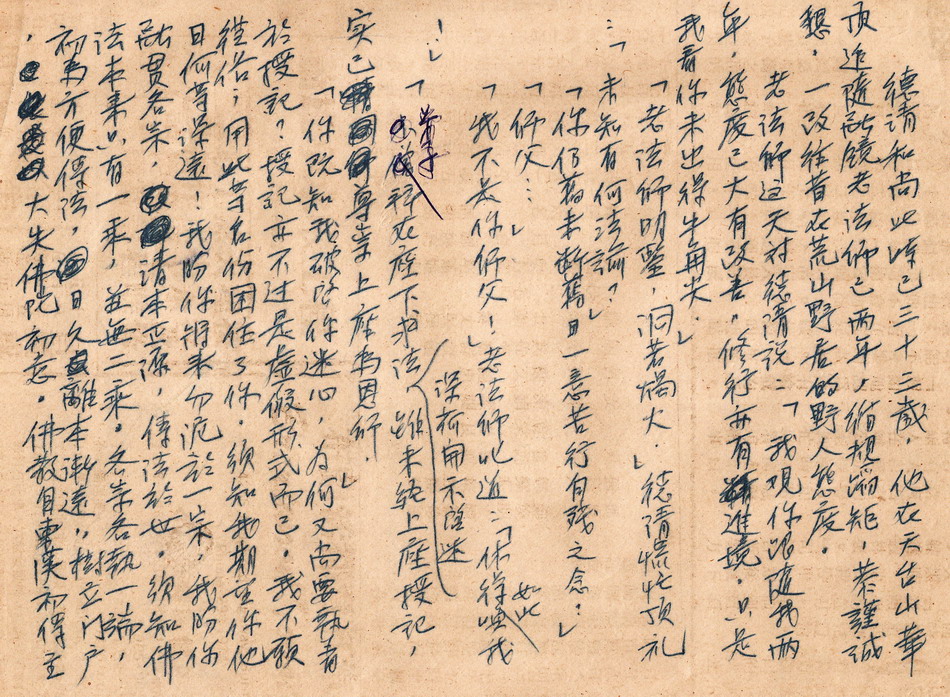 德清和尚此時已三十三歲，他在天台山華
頂追隨融鏡老法師已兩年，循規蹈矩，恭謹誠
懇，一改往昔在荒山野居的野人態度。
老法師這天對德清說：「我观你跟隨我兩
年，態度已大有改善，修行亦有進境。只是
我看你未出得牛角尖。」
「老法師明鑒，洞若燭火。」德清慌忙頂礼
「未知有何法諭？」
「你仍舊未斷舊日一意苦行自殘之念！」
「師父…」
「我不是你師父！」老法師叱道：「休得如此喚我
！」
「弟子蒙拜在座下求法，深荷開示啓迷，雖未經上座授記，
实已尊崇上座为恩師。
「你既知我破除你迷心，为何又尚要執着
於授記？授記亦不过是虛假形式而已。我不願
從俗，用此等名份困住了你，須知我期望你他
日何等深遠！我盼你將来勿泥於一宗，我盼你
融贯各宗，請本正源，傳法於世。須知佛
法本来只有一乘，並無二乘。各宗各執一端，
初为方便傳法，日久離本漸遠，樹立门户
，大失佛陀初意。佛教自東漢初傳至